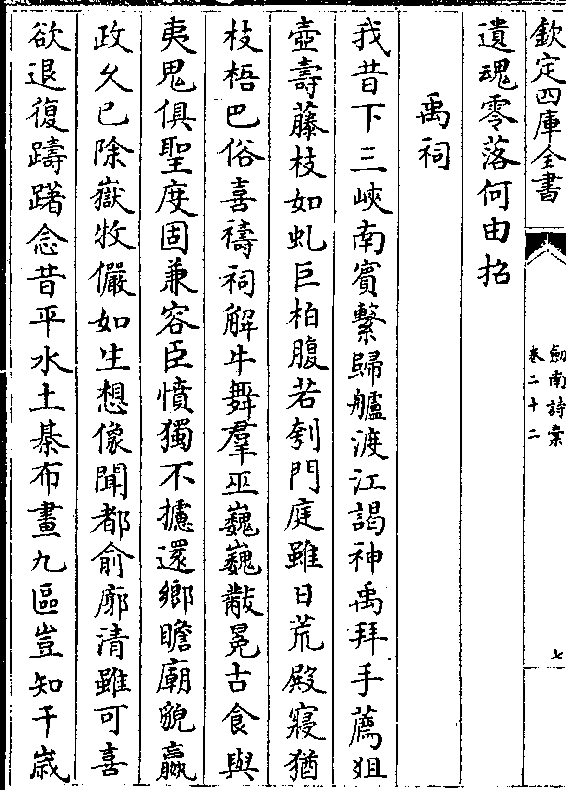 欽定四庫全書
劍南詩稾
卷二十二
七
遺魂零落何由招
禹祠
我昔下三峽南賓繫歸艫渡江謁神禹拜手薦俎
壺壽藤枝如虬巨柏腹若刳門庭雖日荒殿寢猶
枝梧巴俗喜禱祠解牛舞羣巫巍巍黻冕古食與
夷鬼俱聖度固兼容臣憤獨不攄還鄉瞻廟貌嬴
政久已除嶽牧儼如生想像聞都俞廓清雖可喜
欲退復躊躇念昔平水土棊布畫九區豈知千歳